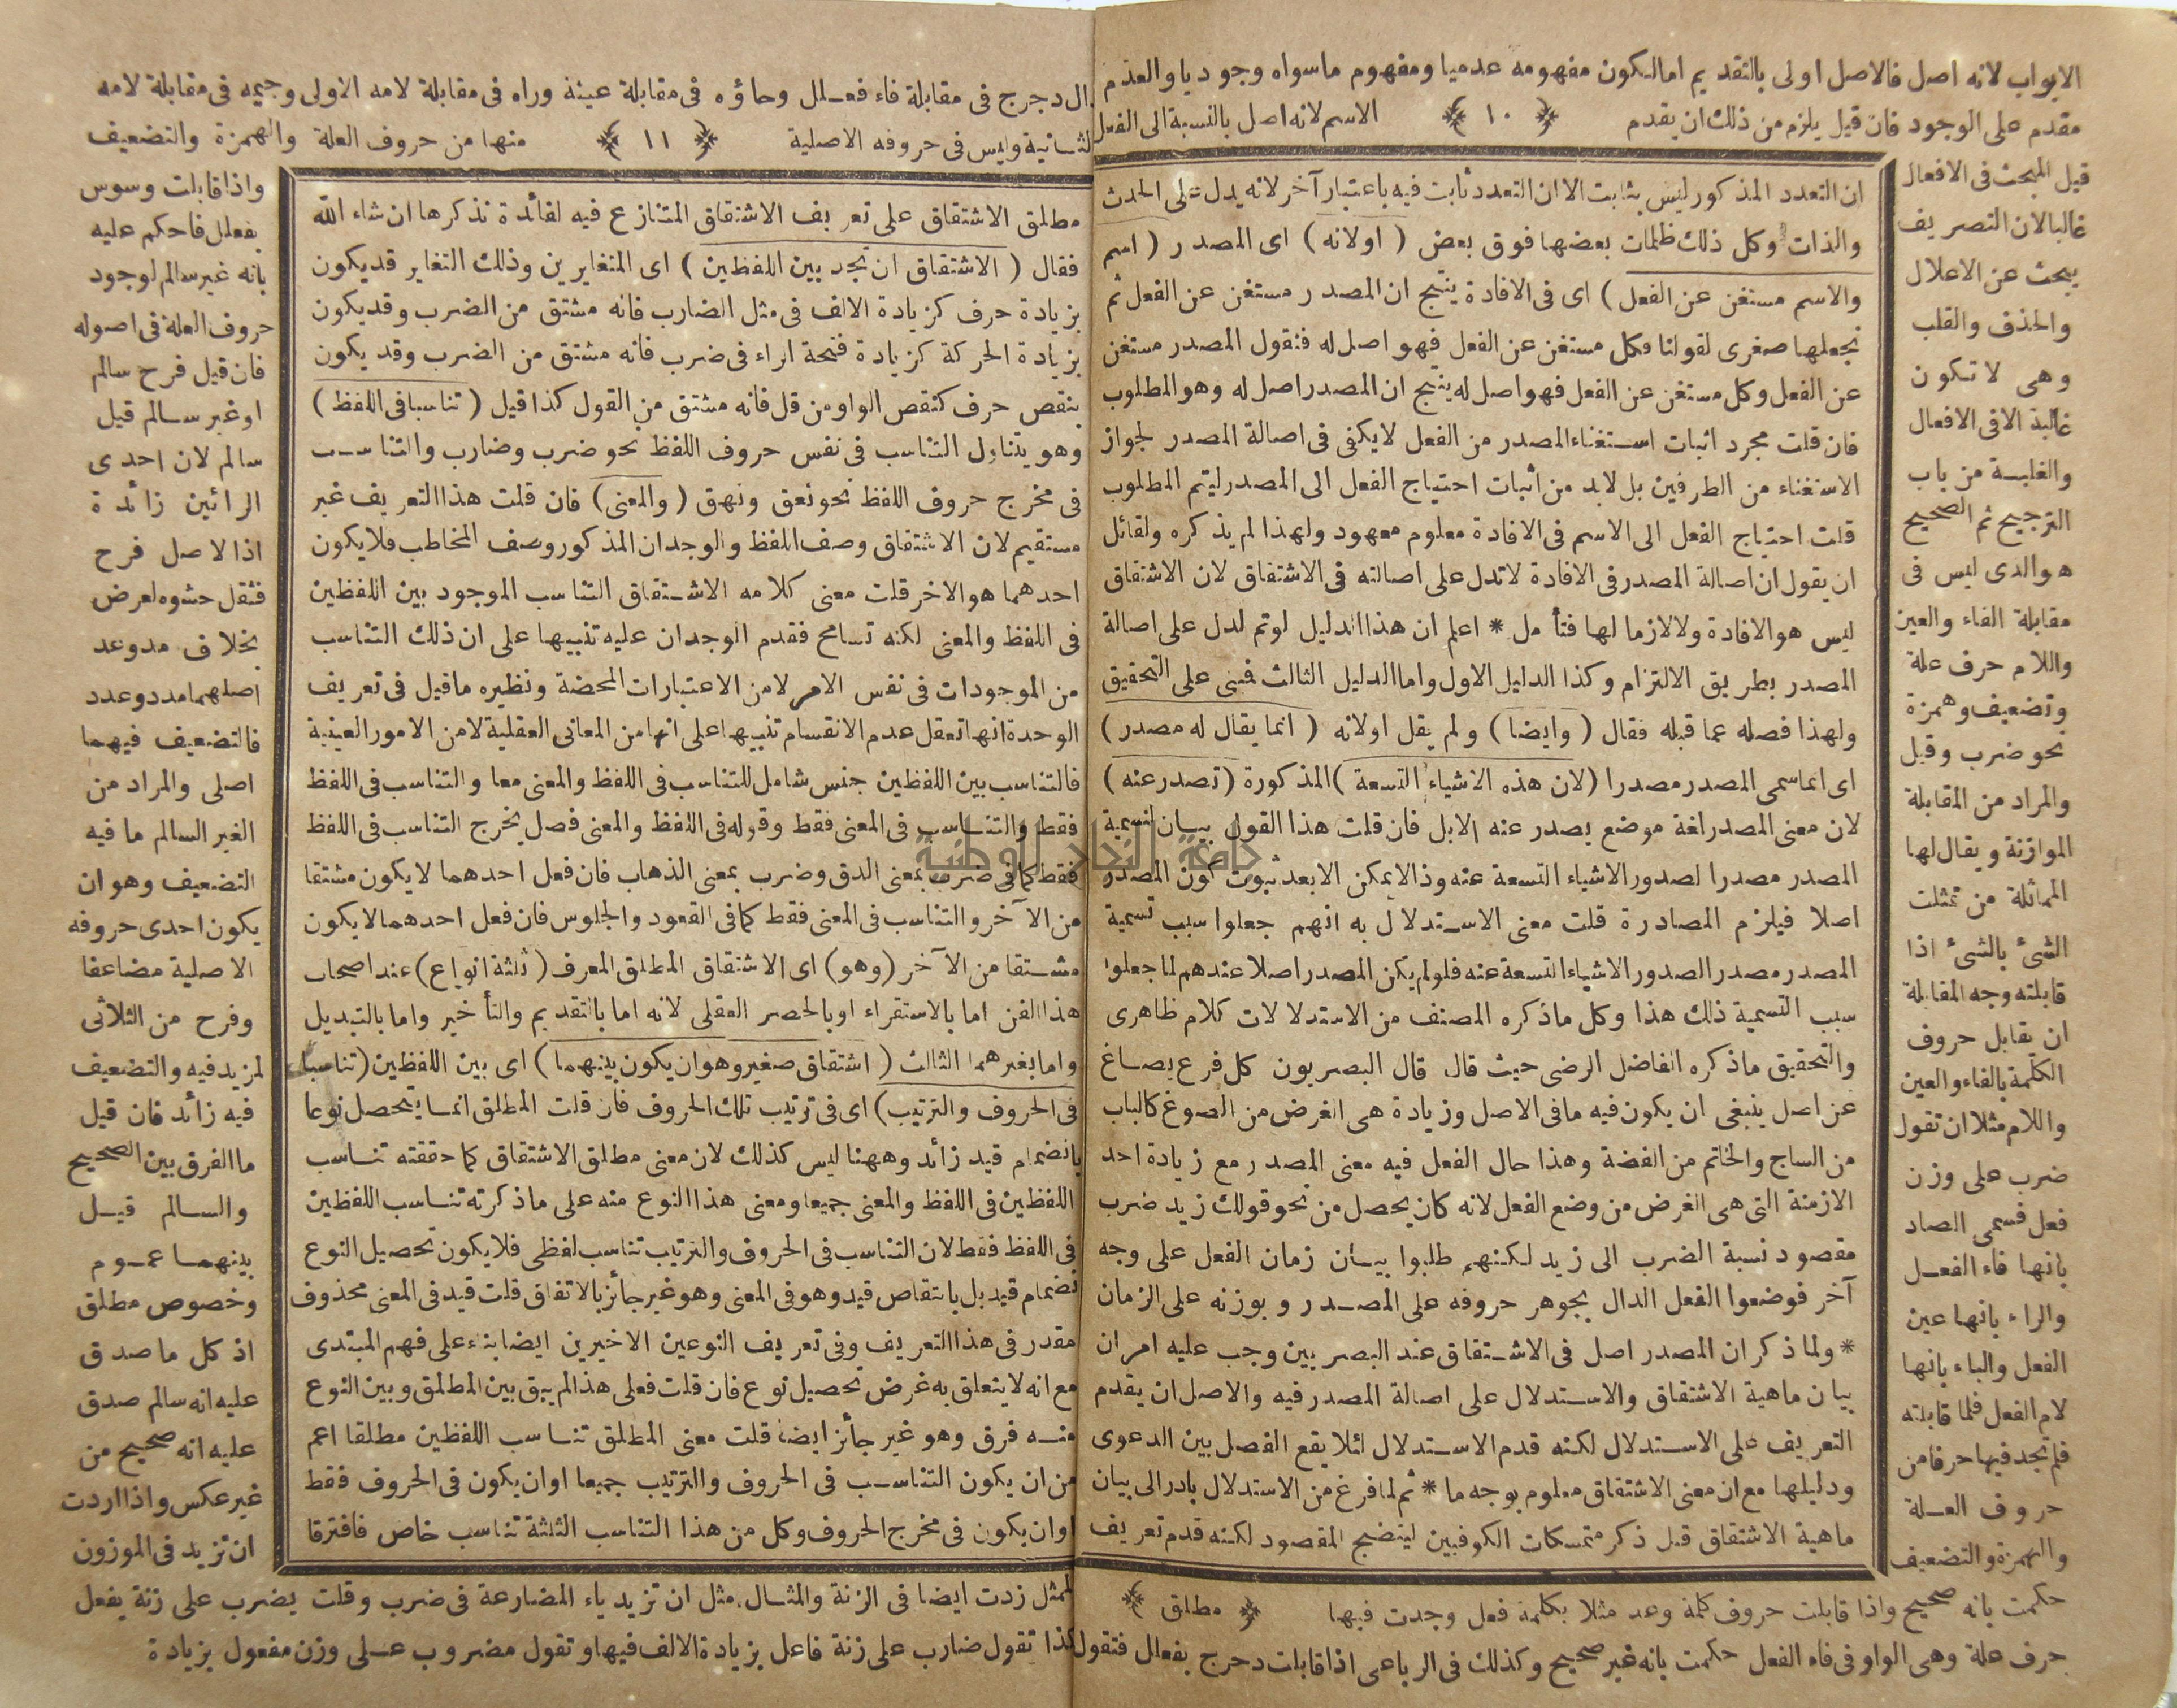 الابواب لانه اصل فالاصل اولى بالتقديم امالكون مفهومه عدميا ومفهوم ماسواه وجوديا والعدم
مقدم على الوجود فان قيل يلزم من ذلك ان يقدم ﴿ ١٠ ﴾ الاسم لانه اصل بالنسبة الى الفعل
قيل المبحث فى الافعال
غالبا لان التصريف
يبحث عن الاعلال
والحذف والقلب
وهى لا تكون
غالبة الا فى الافعال
والغلبة من باب
الترجيح ثم الصحيح
هو الذى ليس فى
مقابلة الفاء والعين
واللام حرف علة
وتضعيف وهمزة
نحو ضرب وقبل
والمراد من المقابلة
الموازنة ويقال لها
المماثلة من تمثلت
الشئ بالشئ اذا
قابلته وجه المقابلة
ان يقابل حروف
الكلمة بالفاء والعين
واللام مثلا ان تقول
ضرب على وزن
فعل فسمى الضاد
بانها فاء الفعل
والراء بانها عين
الفعل والباء بانها
لام الفعل فلما قابلته
فلم تجد فيها حرفا من
حروف العلة
والهمزة والتضعيف
ان التعدد المذكور ليس بثابت الا ان التعدد ثابت فيه باعتبار آخر لانه يدل على الحدث
والذات وكل ذلك ظلمات بعضها فوق بعض ( او لانه ) اى المصدر ( اسم
والاسم مستغن عن الفعل ) اى فى الافادة ينتج ان المصدر مستغن عن الفعل ثم
نجعلها صغرى لقولنا وكل مستغن عن الفعل فهو اصل له فنقول المصدر مستغن
عن الفعل وكل مستغن عن الفعل فهو اصل له ينتج ان المصدر اصل له وهو المطلوب
فان قلت مجرد اثبات استغناء المصدر من الفعل لا يكفى فى اصالة المصدر لجواز
الاستغناء من الطرفين بل لابد من اثبات احتياج الفعل الى المصدر ليتم المطلوب
قلت احتياج الفعل الى الاسم فى الافادة معلوم معهود ولهذا لم يذكره ولقائل
ان يقول ان اصالة المصدر فى الافادة لا تدل على اصالته فى الاشتقاق لان الاشتقاق
ليس هو الافادة ولا لازما لها فتأمل * اعلم ان هذا الدليل لو تم لدل على اصالة
المصدر بطريق الالتزام وكذا الدليل الاول واما الدليل الثالث فبنى على التحقيق
ولهذا فصله عما قبله فقال ( وايضا ) ولم يقل او لانه ( انما يقال له مصدر )
اى انما سمى المصدر مصدرا ( لان هذه الاشياء التسعة ) المذكورة ( تصدر عنه )
لان معنى المصدر لغة موضع يصدر عنه الابل فان قلت هذا القول بيان لتسمية
المصدر مصدرا لصدور الاشياء التسعة عنه وذا لا يمكن الا بعد ثبوت كون المصدر
اصلا فيلزم المصادرة قلت معنى الاستدلال به انهم جعلوا سبب تسمية
المصدر مصدر الصدور الاشياء التسعة عنه فلو لم يكن المصدر اصلا عندهم لما جعلوا
سبب التسمية ذلك هذا وكل ما ذكره المصنف من الاستدلالات كلام ظاهرى
والتحقيق ما ذكره الفاضل الرضى حيث قال قال البصريون كل فرع يصاغ
عن اصل ينبغى ان يكون فيه ما فى الاصل وزيادة هى الغرض من الصوغ كالباب
من الساج والخاتم من الفضة وهذا حال الفعل فيه معنى المصدر مع زيادة احد
الازمنة التى هى الغرض من وضع الفعل لانه كان يحصل من نحو قولك زيد ضرب
مقصود نسبة الضرب الى زيد لكنهم طلبوا بيان زمان الفعل على وجه
آخر فوضعوا الفعل الدال بجوهر حروفه على المصدر وبوزنه على الزمان
* ولما ذكر ان المصدر اصل فى الاشتقاق عند البصريين وجب عليه امران
بيان ماهية الاشتقاق والاستدلال على اصالة المصدر فيه والاصل ان يقدم
التعريف على الاستدلال لكنه قدم الاستدلال لئلا يقع الفصل بين الدعوى
ودليلها مع ان معنى الاشتقاق معلوم بوجه ما * ثم لما فرغ من الاستدلال بادر الى بيان
ماهية الاشتقاق قبل ذكر متمسكات الكوفيين ليتضح المقصود لكنه قدم تعريف
حكمت بانه صحيح واذا قابلت حروف كلمة وعد مثلا بكلمة فعل وجدت فيها ﴿ مطلق ﴾
حرف علة وهى الواو فى فاء الفعل حكمت بانه غير صحيح وكذلك فى الرباعى اذا قابلت دحرج بفعلل فتقول
ال دحرج فى مقابلة فاء فعلل وحاؤه فى مقابلة عينه وراه فى مقابلة لامه الاولى وجيمه فى مقابلة لامه
الثانية وليس فى حروفه الاصلية ﴿ ١١ ﴾ منها من حروف العلة والهمزة والتضعيف
مطلق الاشتقاق على تعريف الاشتقاق المتنازع فيه لفائدة نذكرها ان شاء الله
فقال ( الاشتقاق ان تجد بين اللفظين ) اى المتغايرين وذلك التغاير قد يكون
بزيادة حرف كزيادة الالف فى مثل الضارب فانه مشتق من الضرب وقد يكون
بزيادة الحركة كزيادة فتحة الراء فى ضرب فانه مشتق من الضرب وقد يكون
بنقص حرف كنقص الواو من قل فانه مشتق من القول كذا قيل ( تناسبا فى اللفظ )
وهو يتناول التناسب فى نفس حروف اللفظ نحو ضرب وضارب والتناسب
فى مخرج حروف اللفظ نحو نعق ونهق ( والمعنى ) فان قلت هذا التعريف غير
مستقيم لان الاشتقاق وصف اللفظ والوجدان المذكور وصف المخاطب فلا يكون
احدهما هو الاخر قلت معنى كلامه الاشتقاق التناسب الموجود بين اللفظين
فى اللفظ والمعنى لكنه تسامح فقدم الوجدان عليه تنبيها على ان ذلك التناسب
من الموجودات فى نفس الامر لا من الاعتبارات المحضة ونظيره ما قيل فى تعريف
الوحدة انها تعقل عدم الانقسام تنبيها على انها من المعانى العقلية لا من الامور العينية
فالتناسب بين اللفظين جنس شامل للتناسب فى اللفظ والمعنى معا والتناسب فى اللفظ
فقط والتناسب فى المعنى فقط وقوله فى اللفظ والمعنى فصل يخرج التناسب فى اللفظ
فقط كما فى ضرب بمعنى الدق وضرب بمعنى الذهاب فان فعل احدهما لا يكون مشتقا
من الآخر والتناسب فى المعنى فقط كما فى القعود والجلوس فان فعل احدهما لا يكون
مشتقا من الآخر ( وهو ) اى الاشتقاق المطلق المعرف ( ثلثة انواع ) عند اصحاب
هذا الفن اما بالاستقراء او بالحصر العقلى لانه اما بالتقديم والتأخير واما بالتبديل
واما بغيرهما الثالث ( اشتقاق صغير وهو ان يكون بينهما ) اى بين اللفظين ( تناسبا
فى الحروف والترتيب ) اى فى ترتيب تلك الحروف فان قلت المطلق انما يتحصل نوعا
بانضمام قيد زائد وههنا ليس كذلك لان معنى مطلق الاشتقاق كما حققته تناسب
اللفظين فى اللفظ والمعنى جميعا ومعنى هذا النوع منه على ما ذكرته تناسب اللفظين
فى اللفظ فقط لان التناسب فى الحروف والترتيب تناسب لفظى فلا يكون تحصيل النوع
بانضمام قيد بل بانتقاص قيد وهو فى المعنى وهو غير جائز بالاتفاق قلت قيد فى المعنى محذوف
مقدر فى هذا التعريف وفى تعريف النوعين الاخيرين ايضا بناء على فهم المبتدى
مع انه لا يتعلق به غرض تحصيل نوع فان قلت فعلى هذا لم يبق بين المطلق وبين النوع
منه فرق وهو غير جائز ايضا قلت معنى المطلق تناسب اللفظين مطلقا اعم
من ان يكون التناسب فى الحروف والترتيب جميعا او ان يكون فى الحروف فقط
او ان يكون فى مخرج الحروف وكل من هذا التناسب الثلثة تناسب خاص فافترقا
واذا قابلت وسوس
بفعلل فاحكم عليه
بانه غير سالم لوجود
حروف العلة فى اصوله
فان قيل فرح سالم
او غير سالم قيل
سالم لان احدى
الرائين زائدة
اذ الاصل فرح
فثقل حشوه لعرض
بخلاف مد وعد
اصلهما مدد وعدد
فالتضعيف فيهما
اصلى والمراد من
الغير السالم ما فيه
التضعيف وهو ان
يكون احدى حروفه
الاصلية مضاعفا
وفرح من الثلاثى
لمزيد فيه والتضعيف
فيه زائد فان قيل
ما الفرق بين الصحيح
والسالم قيل
بينهما عموم
وخصوص مطلق
اذ كل ما صدق
عليه انه سالم صدق
عليه انه صحيح من
غير عكس واذا اردت
ان تزيد فى الموزون
لمثل زدت ايضا فى الزنة والمثال مثل ان تزيد ياء المضارعة فى ضرب وقلت يضرب على زنة يفعل
كذا تقول ضارب على زنة فاعل بزيادة الالف فيها وتقول مضروب على وزن مفعول بزيادة
جامعة النجاح الوطنية